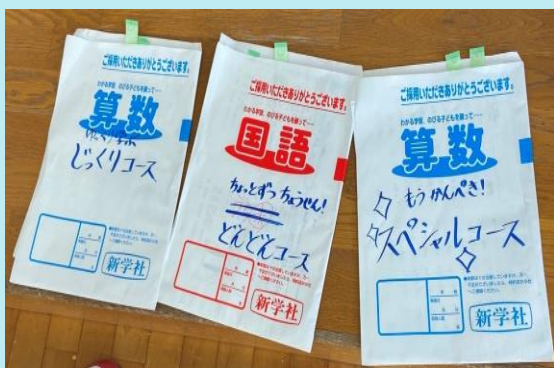 ご採用いただきありがとうございます。
わかる学習、のびる子どもを願って…
算数
じっくりコース
新学社
ご採用いただきありがとうございます。
わかる学習、のびる子どもを願って…
国語
ちょっとずつちょうせん!
どんどんコース
新学社
ご採用いただきありがとうございます。
わかる学習、のびる子どもを願って…
算数
もうかんぺき!
スペシャルコース
新学社